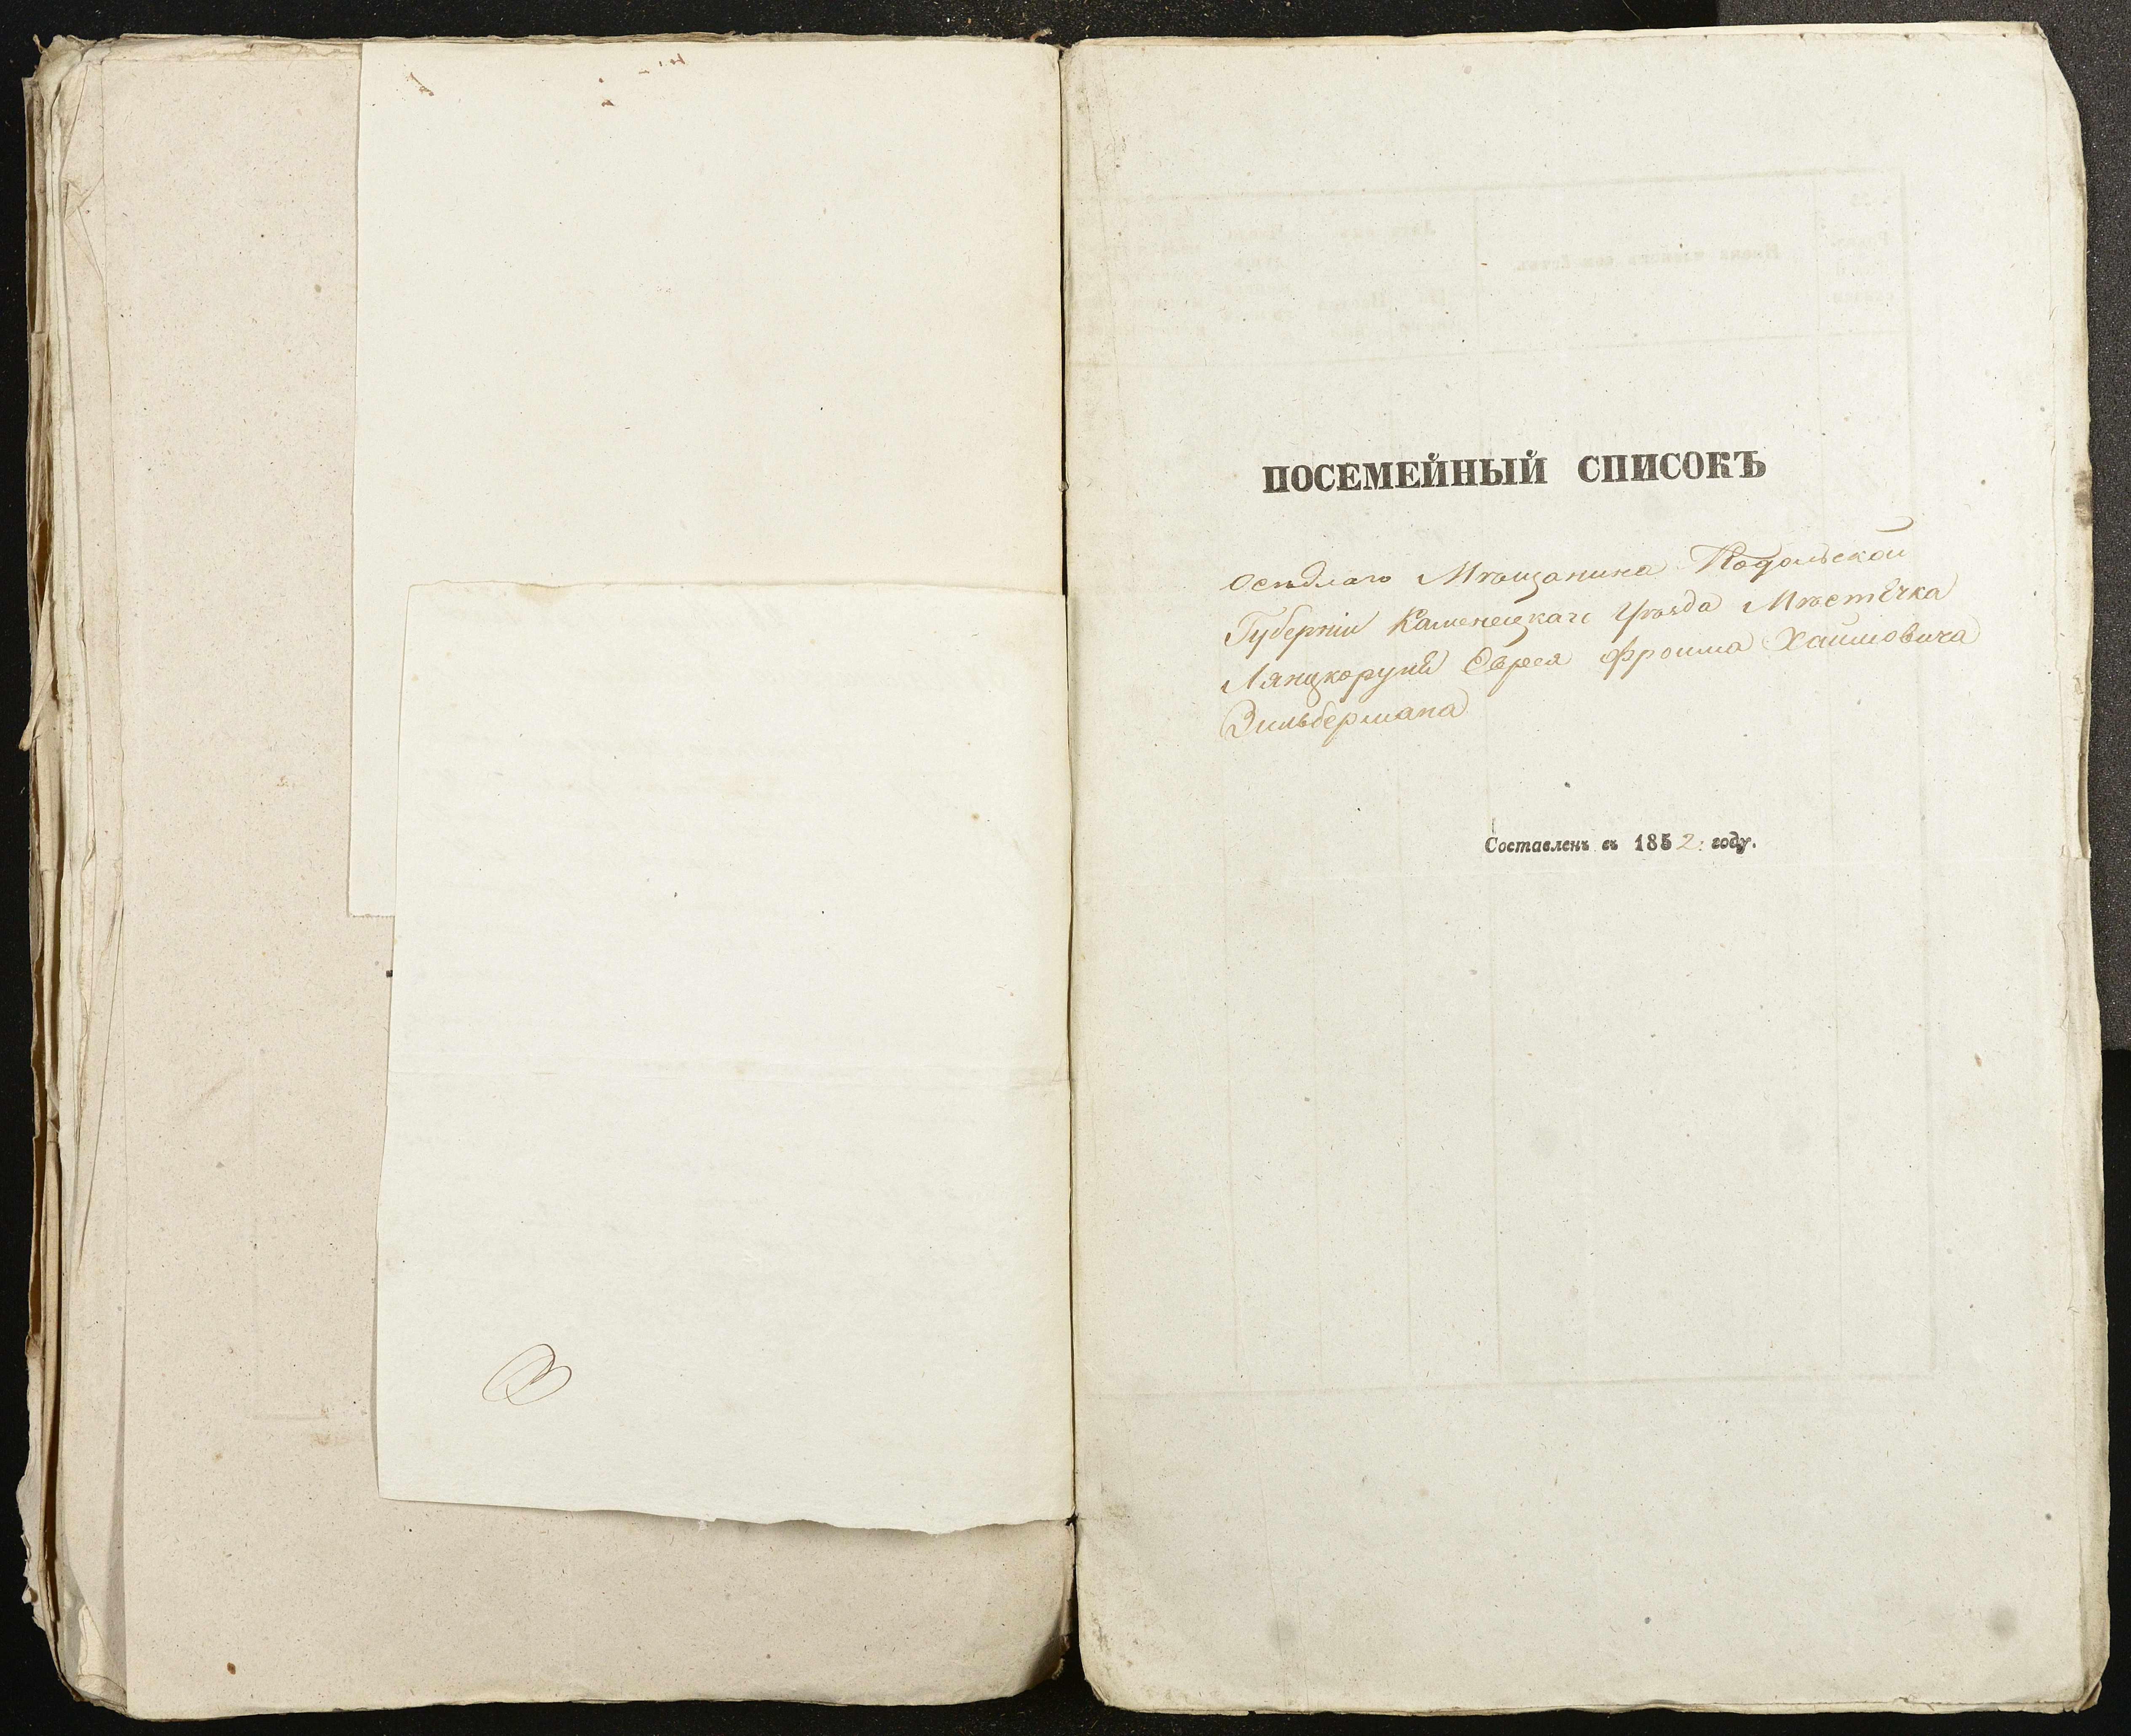 ПОСЕМЕЙНЫЙ СПИСОКЪ
Осѣдлаго Мѣщанина Подольской
Губерніи Каменецкаго Уѣзда Мѣстечка
Лянцкоруня Еврея Фроима Хаимовича
Зильбермана
Составленъ въ 1852: году.